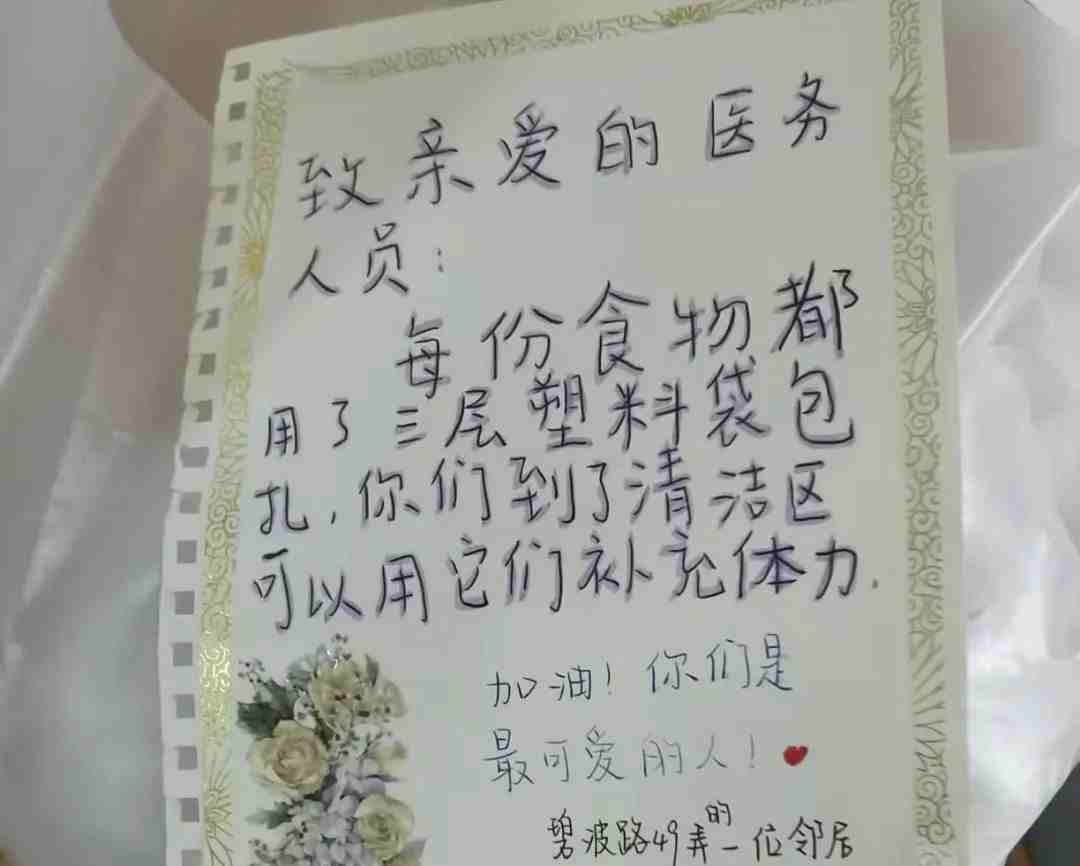 致亲爱的医务
人员：
每份食物都
用了三层塑料袋包
扎，你们到了清洁区
可以用它们补充体力．
加油！你们是
最可爱的人！
碧波路49弄的一位邻居